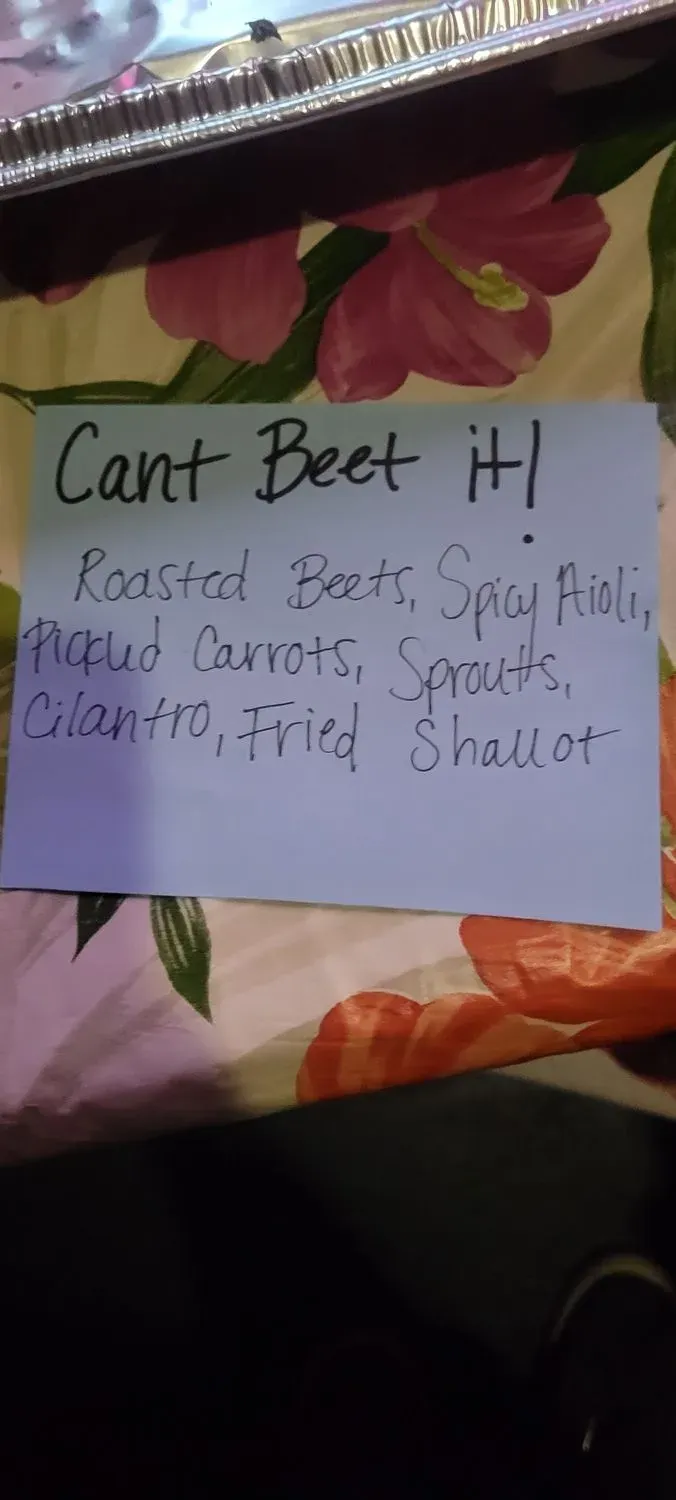 Cant Beet it!
Roasted Beets, Spicy Aioli,
Pickled Carrots, Sproutts,
Cilantro, Fried Shallot